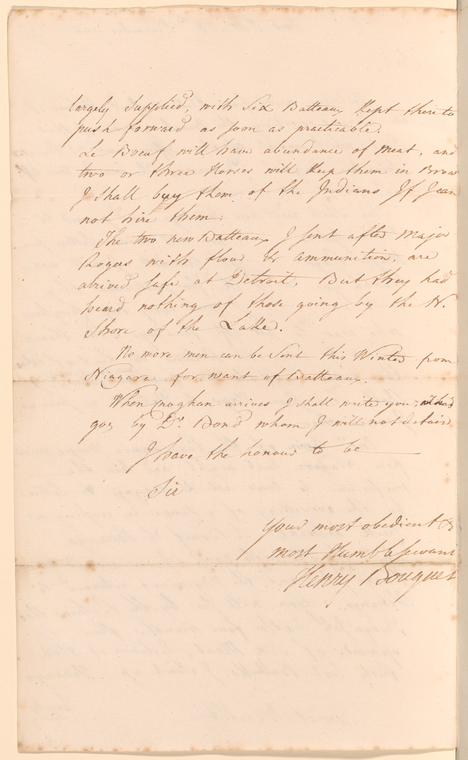 largely supplied, with Six Batteaux kept there to
push forward as soon as practicable.
Le Boeuf will have abundance of meat, and
two or three Horses will keep them in Bread
I shall buy them of the Indians If I can
not hire them.
The two new Batteaux I sent after Major
Rogers with flour & ammunition, are
arived safe at Detroit, But they had
heard nothing of those going by the N.
Shore of the Lake.
No more men can be Sent this Winter from
Niagara for want of Batteaux.
When maghan arives I shall write you;
goes by Dr. Bond whom I will not detain
I have the honour to be
Sir
Your most obedient &
most Humble Servant
Henry Bouquet